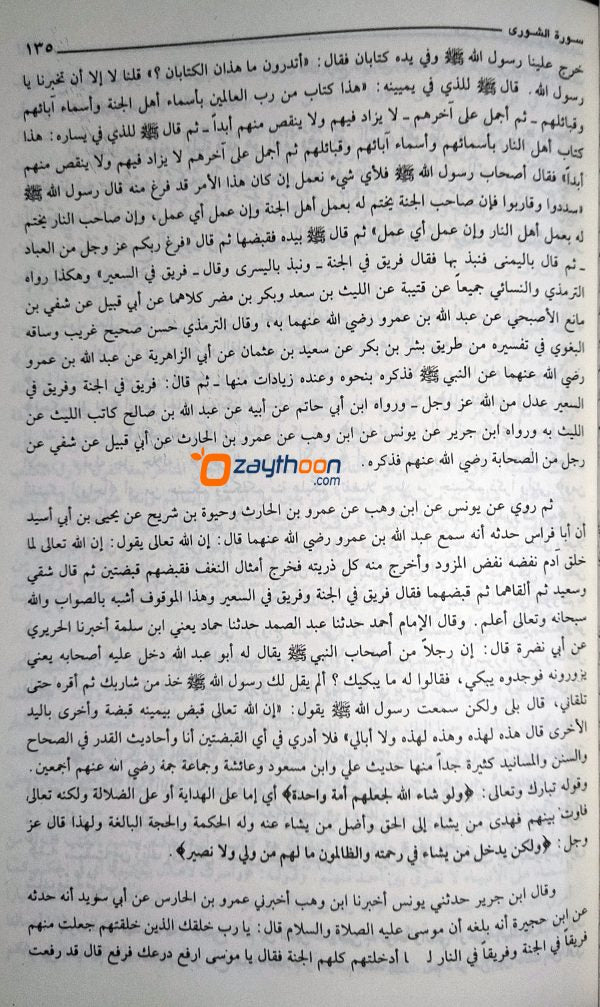 سورة الشورى ١٣٥
خرج علينا رسول الله ﷺ وفي يده كتابان فقال: «أتدرون ما هذان الكتابان ؟» قلنا لا إلا أن تخبرنا يا
رسول الله. قال ﷺ للذي في يمينه: «هذا كتاب من رب العالمين بأسماء أهل الجنة وأسماء آبائهم
وقبائلهم ـ ثم أجمل على آخرهم ـ لا يزاد فيهم ولا ينقص منهم أبداً ـ ثم قال ﷺ للذي في يساره: هذا
كتاب أهل النار بأسمائهم وأسماء آبائهم وقبائلهم ثم أجمل على آخرهم لا يزاد فيهم ولا ينقص منهم
أبداً» فقال أصحاب رسول الله ﷺ فلأي شيء نعمل إن كان هذا الأمر قد فرغ منه قال رسول الله ﷺ
«سددوا وقاربوا فإن صاحب الجنة يختم له بعمل أهل الجنة وإن عمل أي عمل، وإن صاحب النار يختم
له بعمل أهل النار وإن عمل أي عمل» ثم قال ﷺ بيده فقبضها ثم قال «فرغ ربكم عز وجل من العباد
ـ ثم قال باليمنى فنبذ بها فقال فريق في الجنة ـ ونبذ باليسرى وقال ـ فريق في السعير» وهكذا رواه
الترمذي والنسائي جميعاً عن قتيبة عن الليث بن سعد وبكر بن مضر كلاهما عن أبي قبيل عن شفي بن
مانع الأصبحي عن عبد الله بن عمرو رضي الله عنهما به، وقال الترمذي حسن صحيح غريب وساقه
البغوي في تفسيره من طريق بشر بن بكر عن سعيد بن عثمان عن أبي الزاهرية عن عبد الله بن عمرو
رضي الله عنهما عن النبي ﷺ فذكره بنحوه وعنده زيادات منها ـ ثم قال: فريق في الجنة وفريق في
السعير عدل من الله عز وجل ـ ورواه ابن أبي حاتم عن أبيه عن عبد الله بن صالح كاتب الليث عن
الليث به ورواه ابن جرير عن يونس عن ابن وهب عن عمرو بن الحارث عن أبي قبيل عن شفي عن
رجل من الصحابة رضي الله عنهم فذكره.
zaythoon.com
ثم روي عن يونس عن ابن وهب عن عمرو بن الحارث وحيوة بن شريح عن يحيى بن أبي أسيد
أن أبا فراس حدثه أنه سمع عبد الله بن عمرو رضي الله عنهما قال: إن الله تعالى يقول: إن الله تعالى لما
خلق آدم نفضه نفض المزود وأخرج منه كل ذريته فخرج أمثال النغف فقبضهم قبضتين ثم قال شقي
وسعيد ثم ألقاهما ثم قبضهما فقال فريق في الجنة وفريق في السعير وهذا الموقوف أشبه بالصواب والله
سبحانه وتعالى أعلم. وقال الإمام أحمد حدثنا عبد الصمد حدثنا حماد يعني ابن سلمة أخبرنا الحريري
عن أبي نضرة قال: إن رجلاً من أصحاب النبي ﷺ يقال له أبو عبد الله دخل عليه أصحابه يعني
يزورونه فوجدوه يبكي، فقالوا له ما يبكيك ؟ ألم يقل لك رسول الله ﷺ خذ من شاربك ثم أقره حتى
تلقاني، قال بلى ولكن سمعت رسول الله ﷺ يقول: «إن الله تعالى قبض بيمينه قبضة وأخرى باليد
الأخرى قال هذه لهذه وهذه لهذه ولا أبالي» فلا أدري في أي القبضتين أنا وأحاديث القدر في الصحاح
والسنن والمسانيد كثيرة جداً منها حديث علي وابن مسعود وعائشة وجماعة جمة رضي الله عنهم أجمعين.
وقوله تبارك وتعالى: ﴿ولو شاء الله لجعلهم أمة واحدة﴾ أي إما على الهداية أو على الضلالة ولكنه تعالى
فاوت بينهم فهدى من يشاء إلى الحق وأضل من يشاء عنه وله الحكمة والحجة البالغة ولهذا قال عز
وجل: ﴿ولكن يدخل من يشاء في رحمته والظالمون ما لهم من ولي ولا نصير﴾.
وقال ابن جرير حدثني يونس أخبرنا ابن وهب أخبرني عمرو بن الحارس عن أبي سويد أنه حدثه
عن ابن حجيرة أنه بلغه أن موسى عليه الصلاة والسلام قال: يا رب خلقك الذين خلقتهم جعلت منهم
فريقاً في الجنة وفريقاً في النار لـ ـا أدخلتهم كلهم الجنة فقال يا موسى ارفع درعك فرفع قال قد رفعت